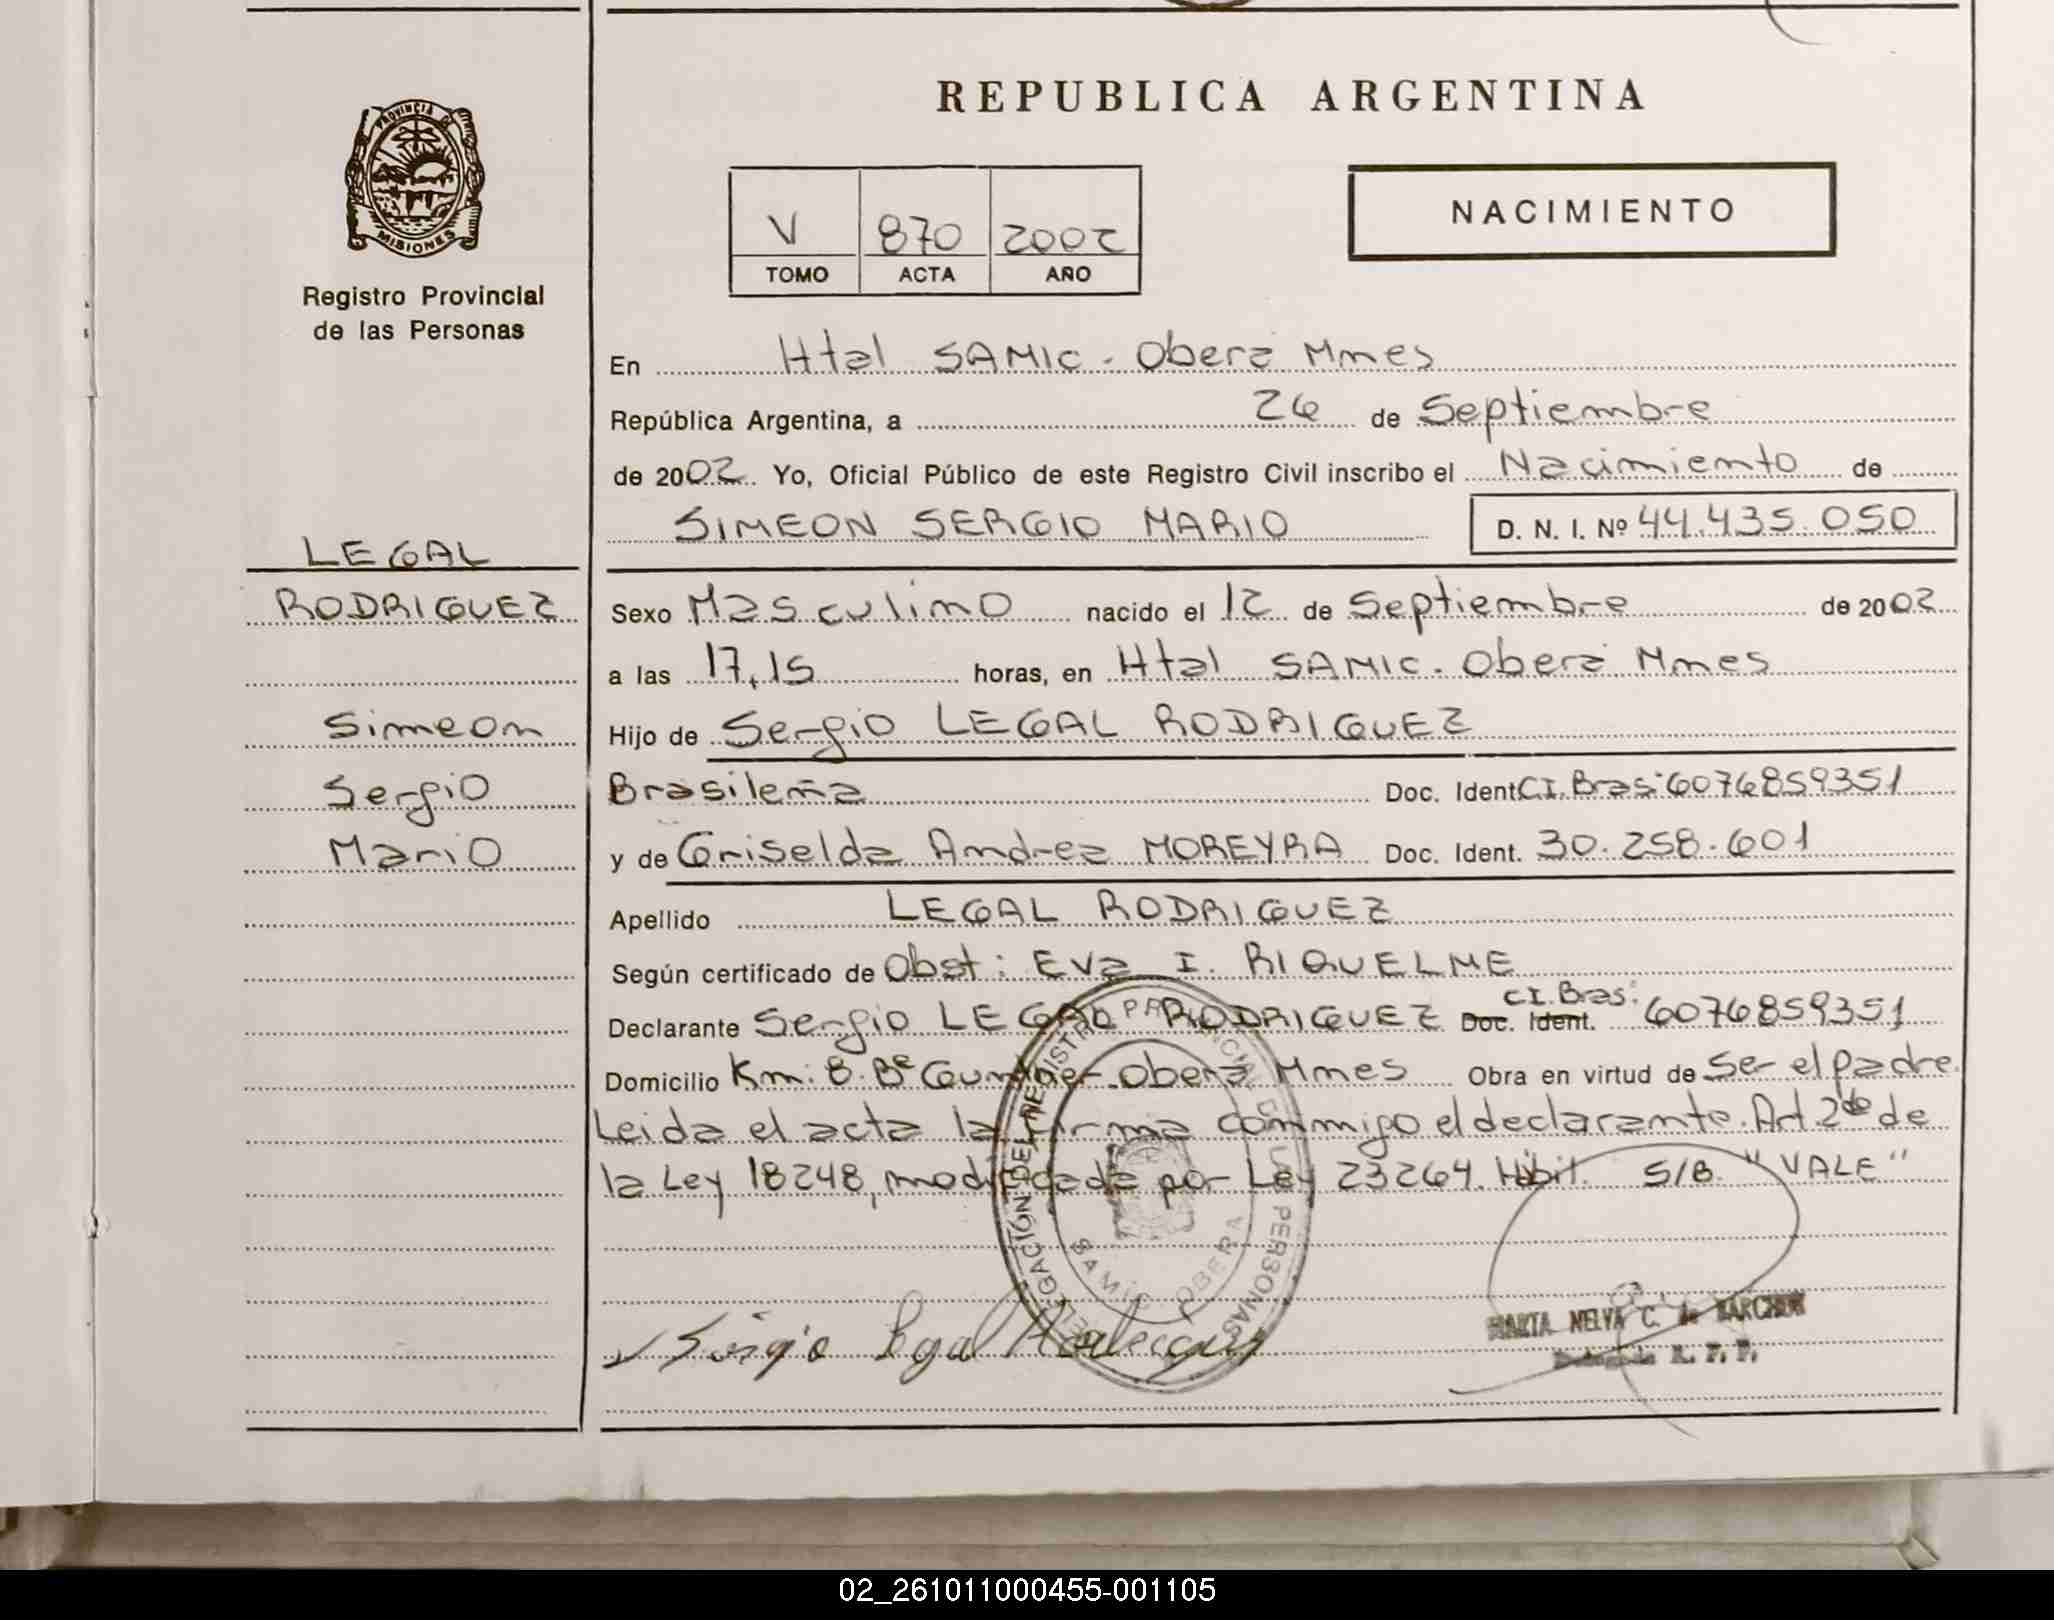 REPUBLICA ARGENTINA
PROVINCIA DE
MISIONES
Registro Provincial
de las Personas
V 870 2002
TOMO ACTA AÑO
NACIMIENTO
En Htal SAMIC - Oberá Mnes
República Argentina, a 26 de Septiembre
de 2002 Yo, Oficial Público de este Registro Civil inscribo el Nacimiento de
SIMEON SERGIO MARIO D. N. I. Nº 44.435.050
LEGAL
RODRIGUEZ
Simeon
Sergio
Mario
Sexo Masculino nacido el 12 de Septiembre de 2002
a las 17,15 horas, en Htal SAMIC - Oberá Mnes
Hijo de Sergio LEGAL RODRIGUEZ
Brasileña Doc. Ident C.I. Bras: 6076859351
y de Griselda Andrea MOREYRA Doc. Ident. 30.258.601
Apellido LEGAL RODRIGUEZ
Según certificado de Obst: Eva I. RIQUELME
Declarante Sergio LEGAL RODRIGUEZ Doc. Ident. C.I. Bras: 6076859351
Domicilio Km: 8. Bº Oberá Mnes Obra en virtud de Ser el padre.
Leida el acta la firma conmigo el declarante. Art. 2do de
la Ley 18248, modificada por Ley 23264. Hibil. S/B. "VALE"
DELEGACIÓN DEL REGISTRO PROVINCIAL DE LAS PERSONAS
SAMIC OBERA
Sergio Legal Rodriguez
MARTA NELVA C. de MARCHUK
Delegada R. P. P.
02_261011000455-001105